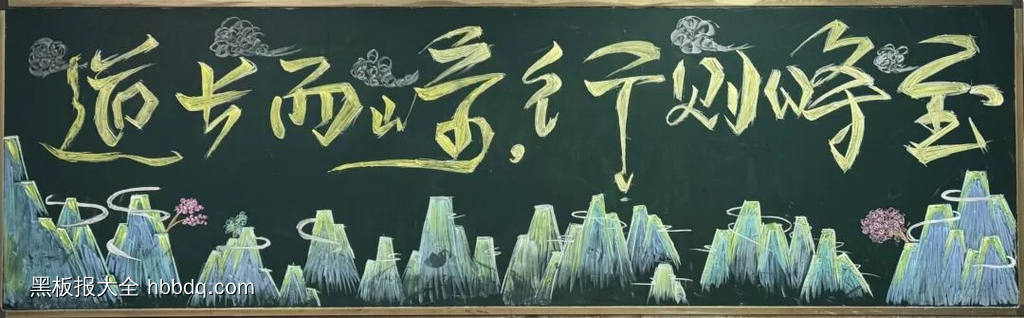 道长而崎，行则峰至
黑板报大全 hbbdq.com